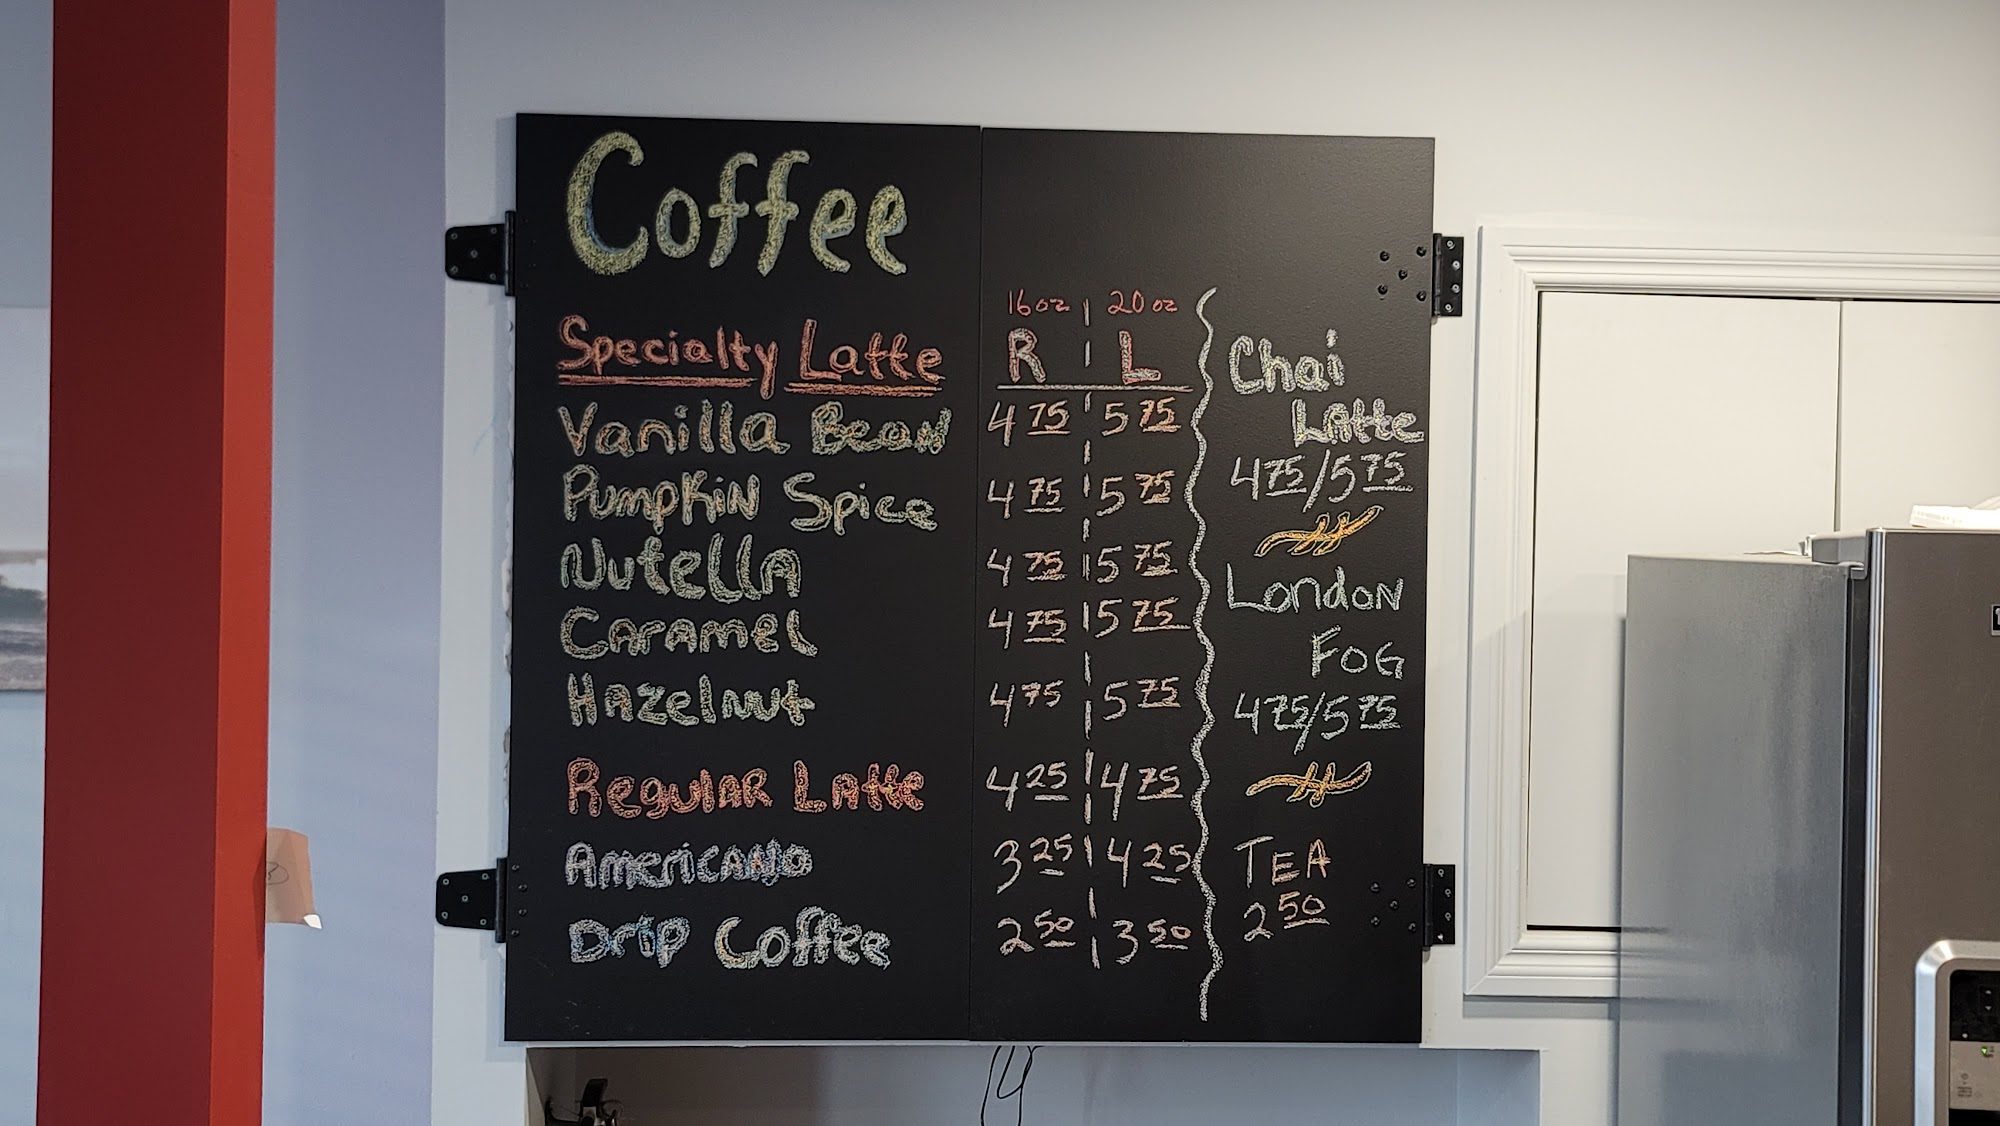 Coffee
16oz 20oz
Specialty Latte R L
Vanilla Bean 4 75 5 75
Pumpkin Spice 4 75 5 75
Nutella 4 75 5 75
Caramel 4 75 5 75
Hazelnut 4 75 5 75
Regular Latte 4 25 4 75
Americano 3 25 4 25
Drip Coffee 2 50 3 50
Chai
Latte
4 75/5 75
London
Fog
4 75/5 75
TEA
2 50